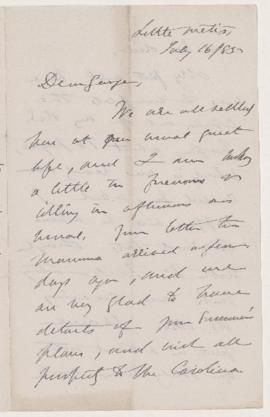 Little Metis
July 16/83
Dear George,
We are all settled
here at our usual quiet
life, and I am
a little in forenoons &
idling in afternoons as
usual. Your letter to
Mamma arrived a few
days ago, and we
are very glad to have
details of your Summer's
plans, and wish all
prosperity to the Carolina